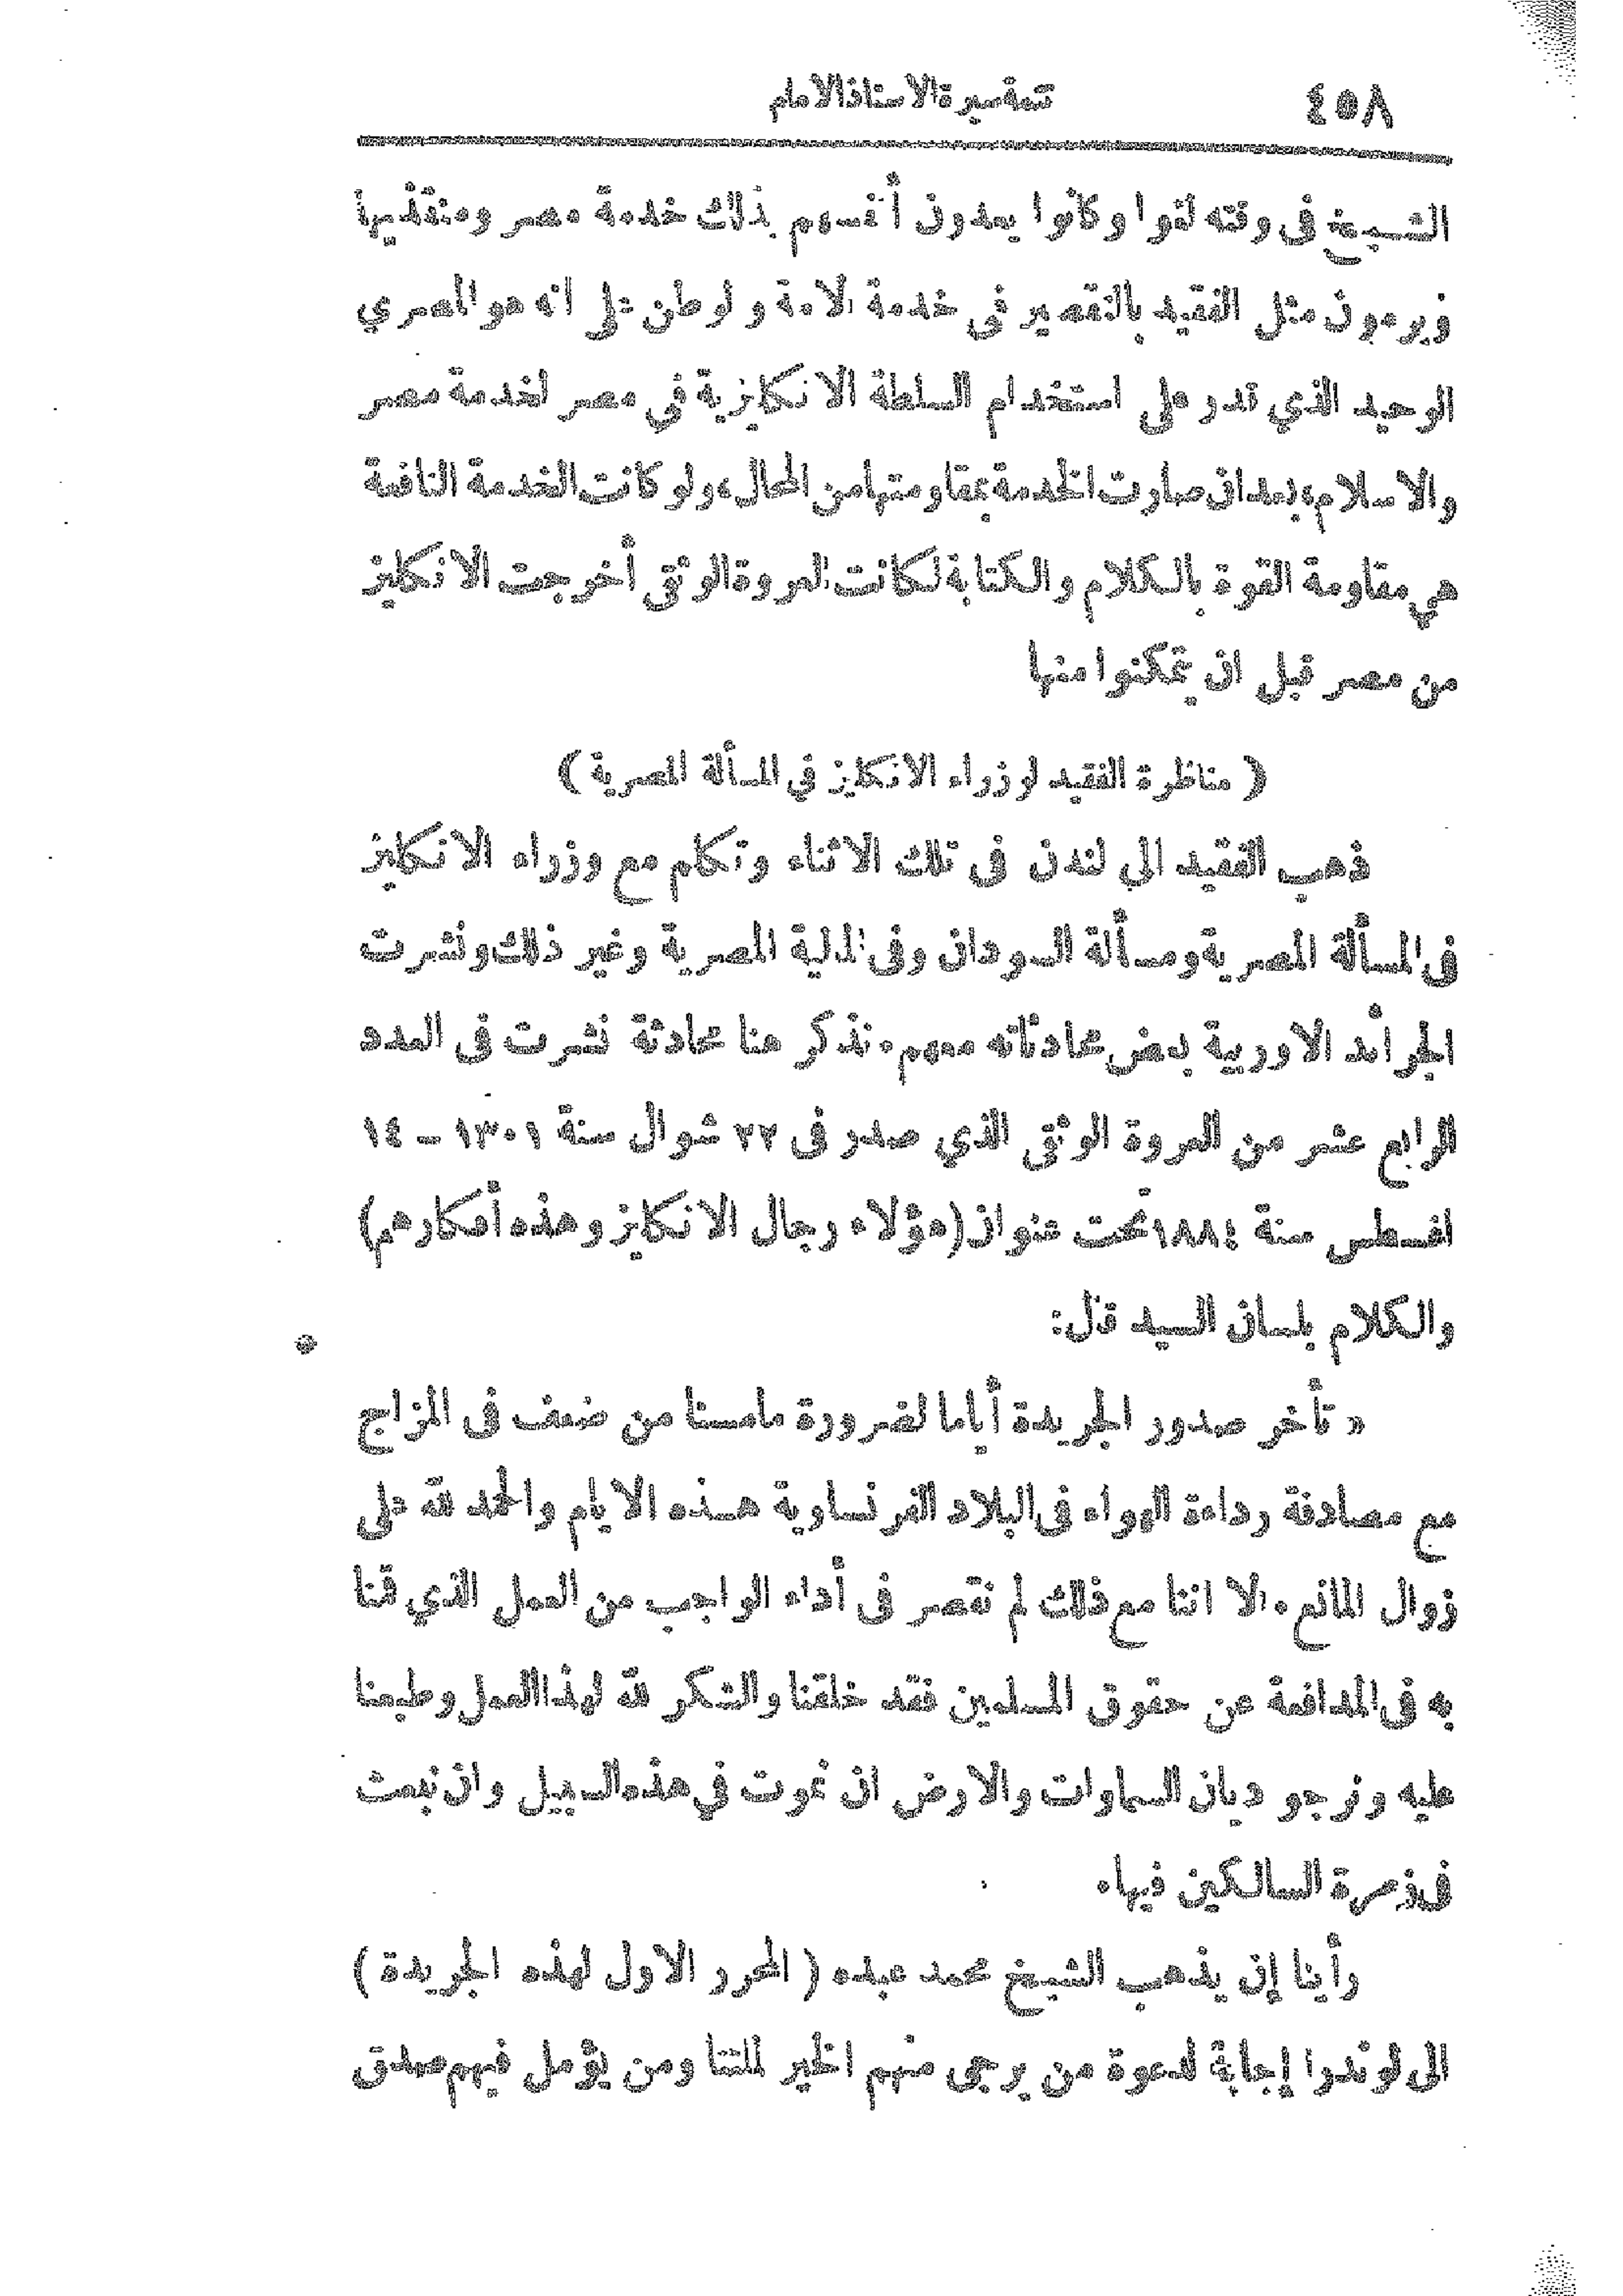 ٤٥٨ تتمة سيرة الاستاذ الامام
الشيخ في وقته لغوا وكانوا يعدون أنفسهم بذلك خدمة مصر ومنقذيها
ويرمون مثل الفقيد بالتقصير في خدمة الامة والوطن على انه هو المصري
الوحيد الذي قدر على استخدام السلطة الانكليزية في مصر لخدمة مصر
والاسلام، بعد ان صارت الخدمة بمقاومتها من المحال، ولو كانت الخدمة النافعة
هي مقاومة القوة بالكلام والكتابة لكانت العروة الوثقى أخرجت الانكليز
من مصر قبل ان يتمكنوا منها
( مناظرة الفقيد لوزراء الانكليز في المسألة المصرية )
ذهب الفقيد الى لندن في تلك الاثناء وتكلم مع وزراء الانكليز
في المسألة المصرية ومسألة السودان وفي المالية المصرية وغير ذلك ونشرت
الجرائد الاوربية بعض محادثاته معهم. نذكر هنا محادثة نشرت في العدد
الرابع عشر من العروة الوثقى الذي صدر في ٢٢ شوال سنة ١٣٠١ – ١٤
اغسطس سنة ١٨٨٤ تحت عنوان (هؤلاء رجال الانكليز وهذه أفكارهم)
والكلام بلسان السيد قال:
« تأخر صدور الجريدة أياما لضرورة مامسنا من ضعف في المزاج
مع مصادفة رداءة الهواء في البلاد الفرنساوية هذه الايام والحمد لله على
زوال المانع. الا اننا مع ذلك لم نقصر في أداء الواجب من العمل الذي قمنا
به في المدافعة عن حقوق المسلمين فقد خلقنا والشكر لله لهذا العمل وطبعنا
عليه ونرجو ديان السماوات والارض ان نموت في هذه السبيل وان نبعث
في زمرة السالكين فيها.
رأينا إن يذهب الشيخ محمد عبده ( المحرر الاول لهذه الجريدة )
الى لوندرا إجابة لدعوة من يرجى منهم الخير لملتنا ومن يؤمل فيهم صدق